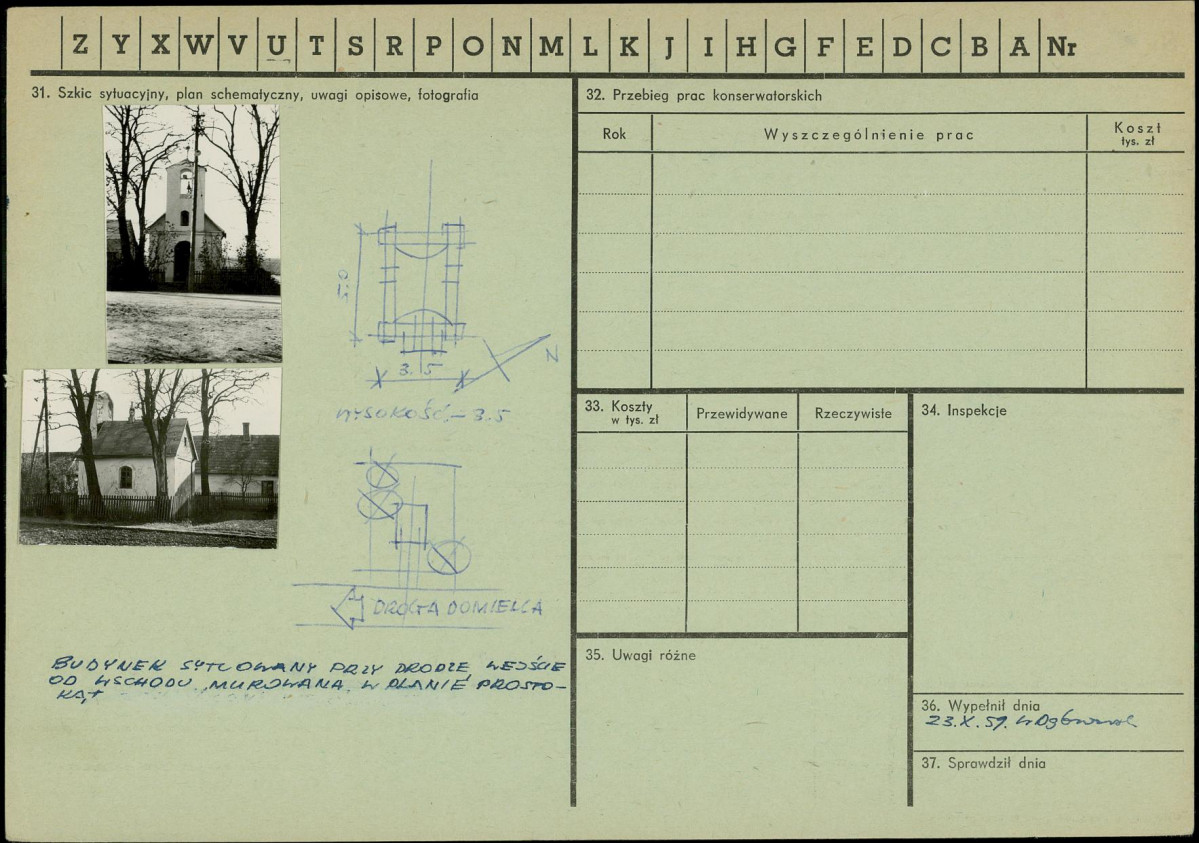 Z Y X W V U T S R P O N M L K J I H G F E D C B A Nr
31. Szkic sytuacyjny, plan schematyczny, uwagi opisowe, fotografia
5.0
3.5
N
WYSOKOŚĆ – 3.5
DROGA DO MIELCA
BUDYNEK SYTUOWANY PRZY DRODZE, WEJŚCIE
OD WSCHODU, MUROWANA, W PLANIE PROSTO-
KĄT
32. Przebieg prac konserwatorskich
Rok
Wyszczególnienie prac
Koszt
tys. zł
33. Koszty
w tys. zł
Przewidywane
Rzeczywiste
34. Inspekcje
35. Uwagi różne
36. Wypełnił dnia
23.X.59.
37. Sprawdził dnia